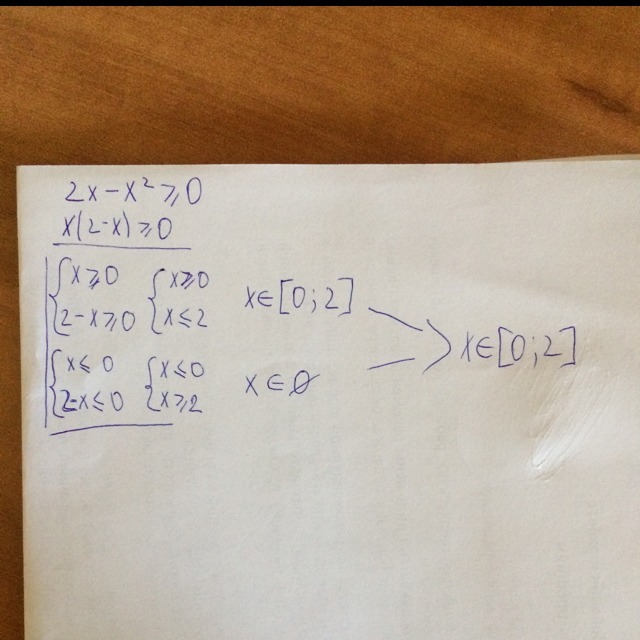 2x-x²≥0
x(2-x)≥0
{x≥0 {x≥0 x∈[0;2]
2-x≥0 x≤2
> x∈[0;2]
{x≤0 {x≤0 x∈∅
2-x≤0 x≥2